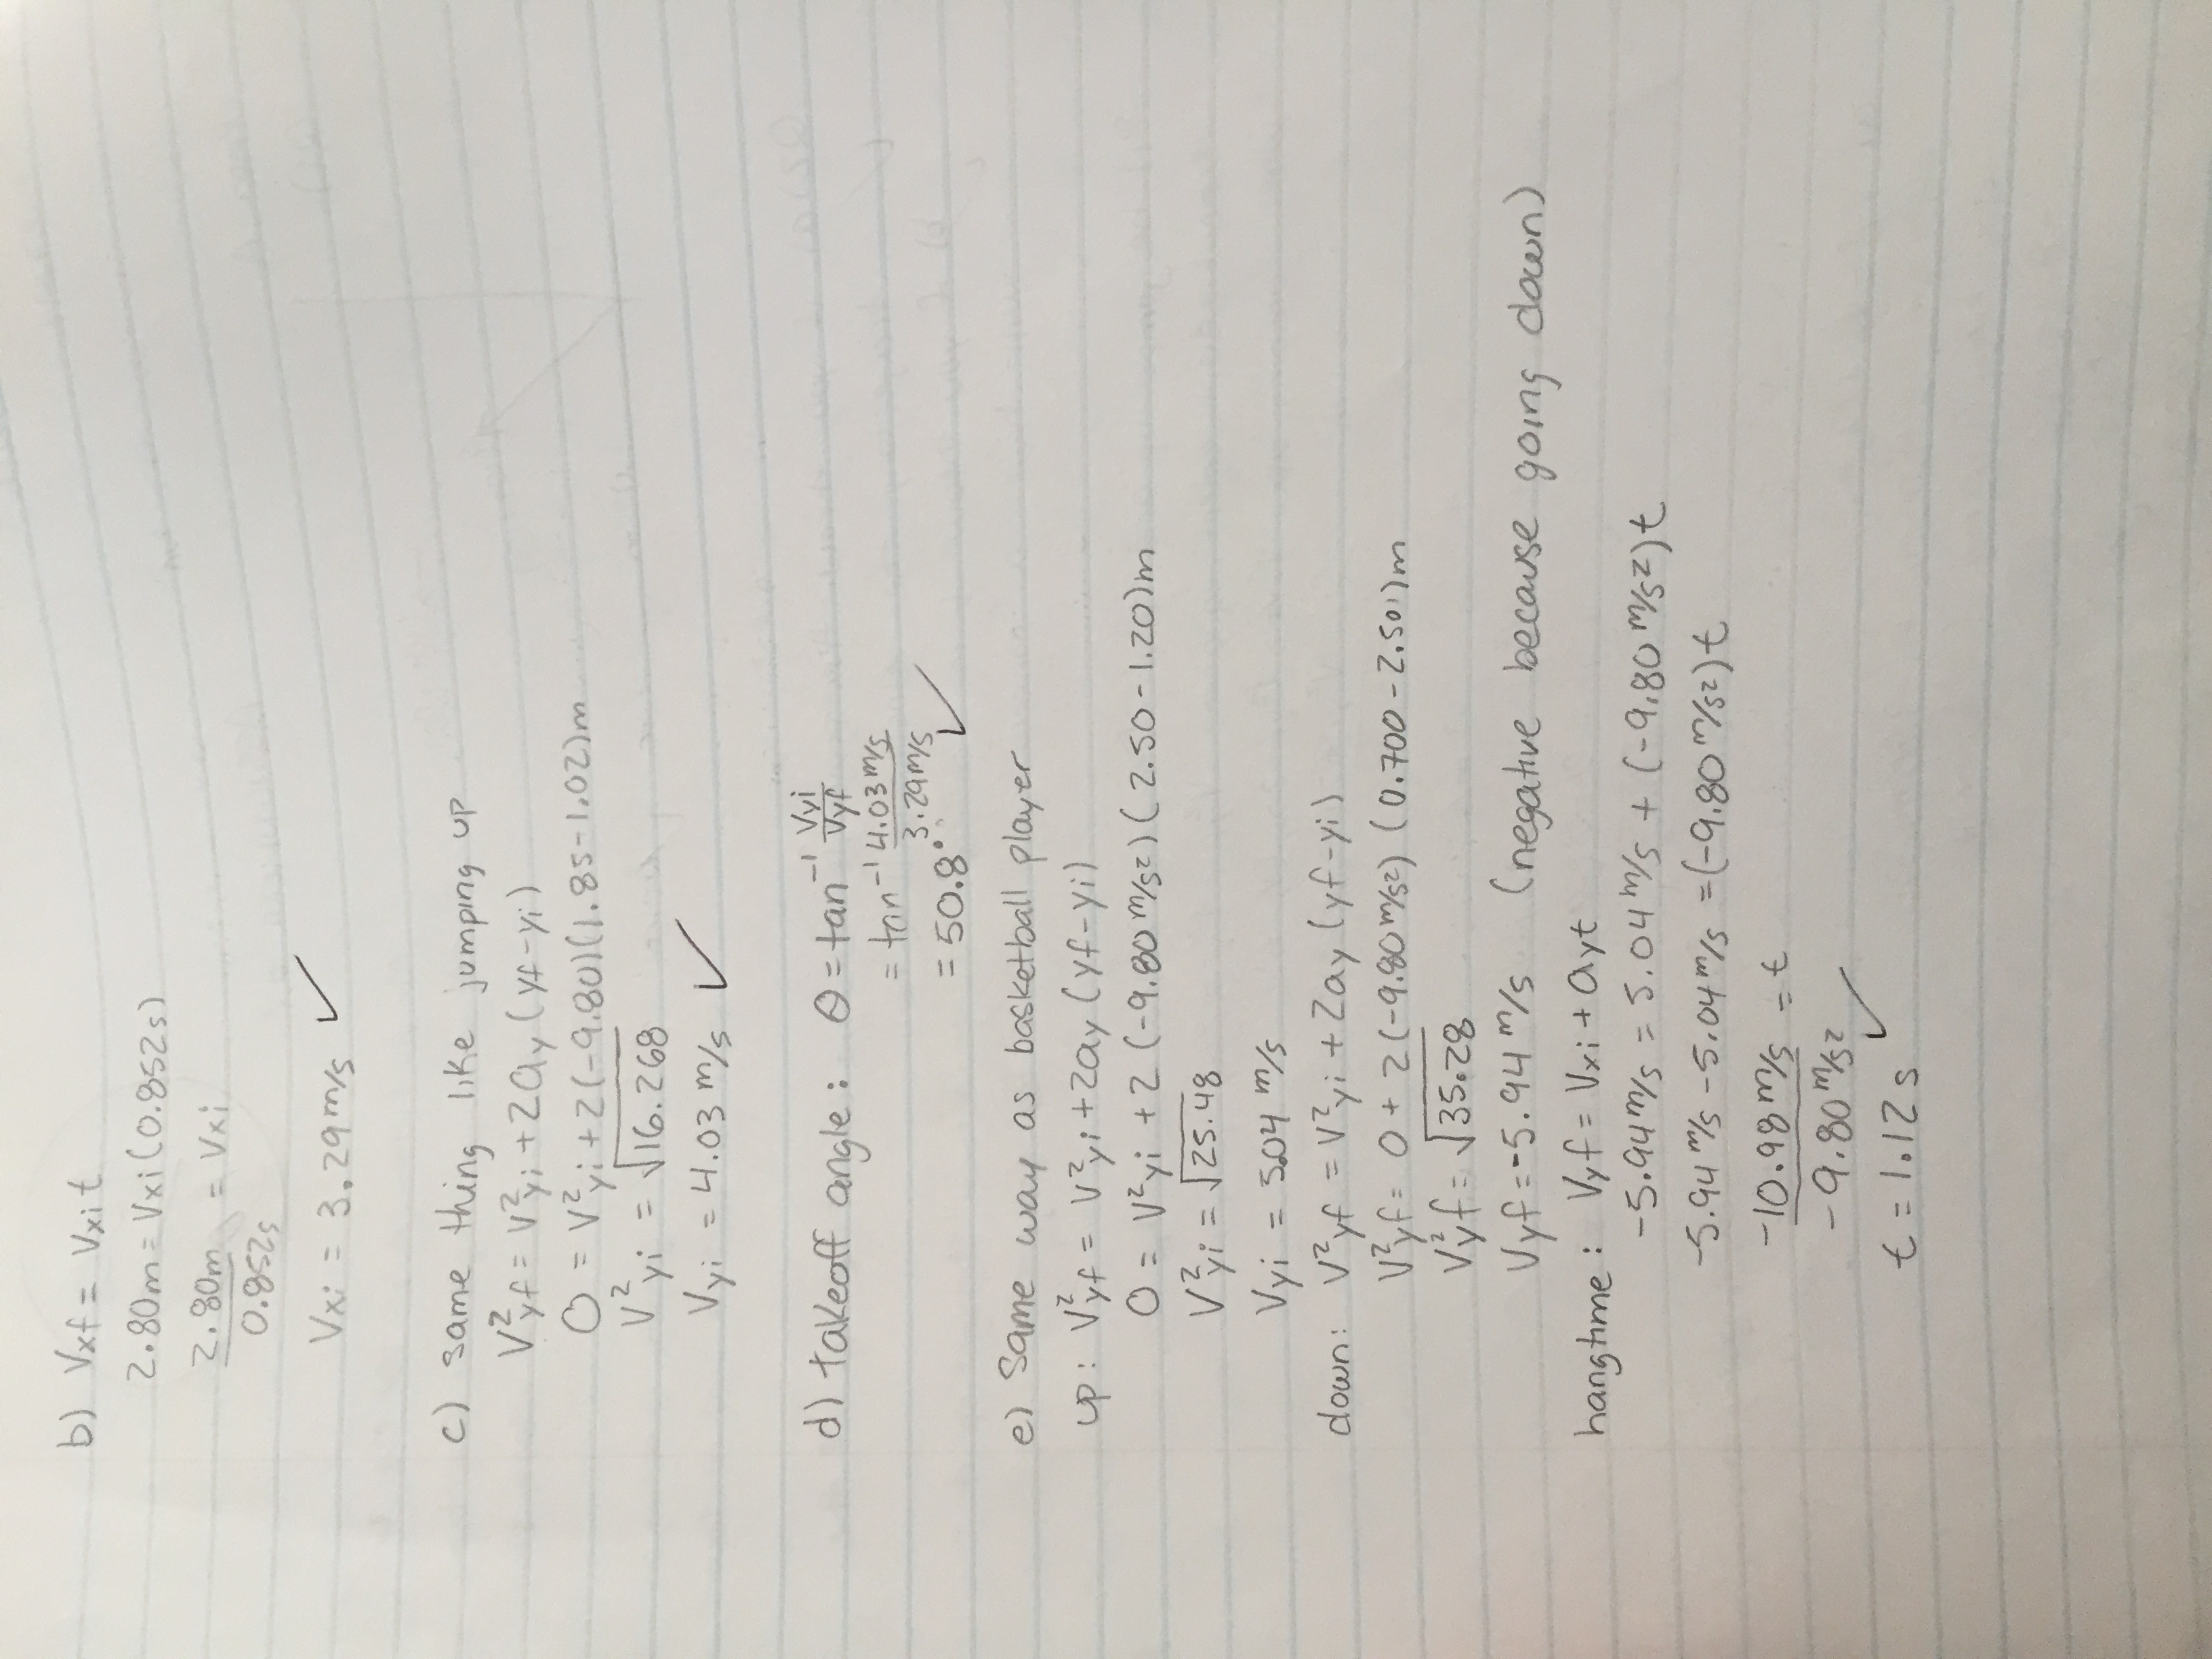 b) Vxf = Vxi t
2.80m = Vxi (0.852s)
2.80m = Vxi
0.852s
Vxi = 3.29 m/s ✓
c) same thing like jumping up
V²yf = V²yi + 2ay (yf - yi)
0 = V²yi + 2(-9.80)(1.85-1.02)m
V²yi = √16.268
Vyi = 4.03 m/s ✓
d) takeoff angle: θ = tan⁻¹ Vyi/Vyf
= tan⁻¹ 4.03 m/s / 3.29 m/s
= 50.8° ✓
e) Same way as basketball player
up: V²yf = V²yi + 2ay (yf - yi)
0 = V²yi + 2 (-9.80 m/s²) (2.50 - 1.20)m
V²yi = √25.48
Vyi = 5.04 m/s
down: V²yf = V²yi + 2ay (yf - yi)
V²yf = 0 + 2 (-9.80 m/s²) (0.700 - 2.50)m
V²yf = √35.28
Vyf = -5.94 m/s (negative because going down)
hangtime: Vyf = Vxi + ayt
-5.94 m/s = 5.04 m/s + (-9.80 m/s²)t
-5.94 m/s - 5.04 m/s = (-9.80 m/s²)t
-10.98 m/s = t
-9.80 m/s²
t = 1.12 s ✓